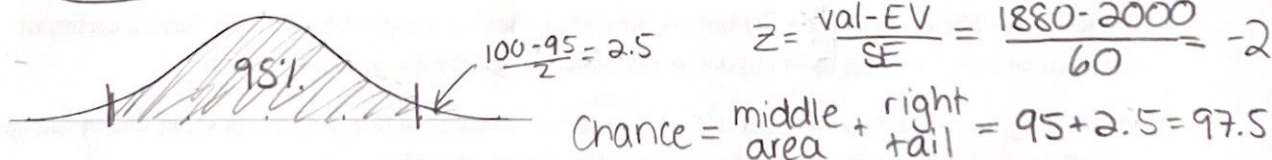 95%
100-95/2 = 2.5
z = val-EV/SE = 1880-2000/60 = -2
Chance = middle area + right tail = 95+2.5=97.5